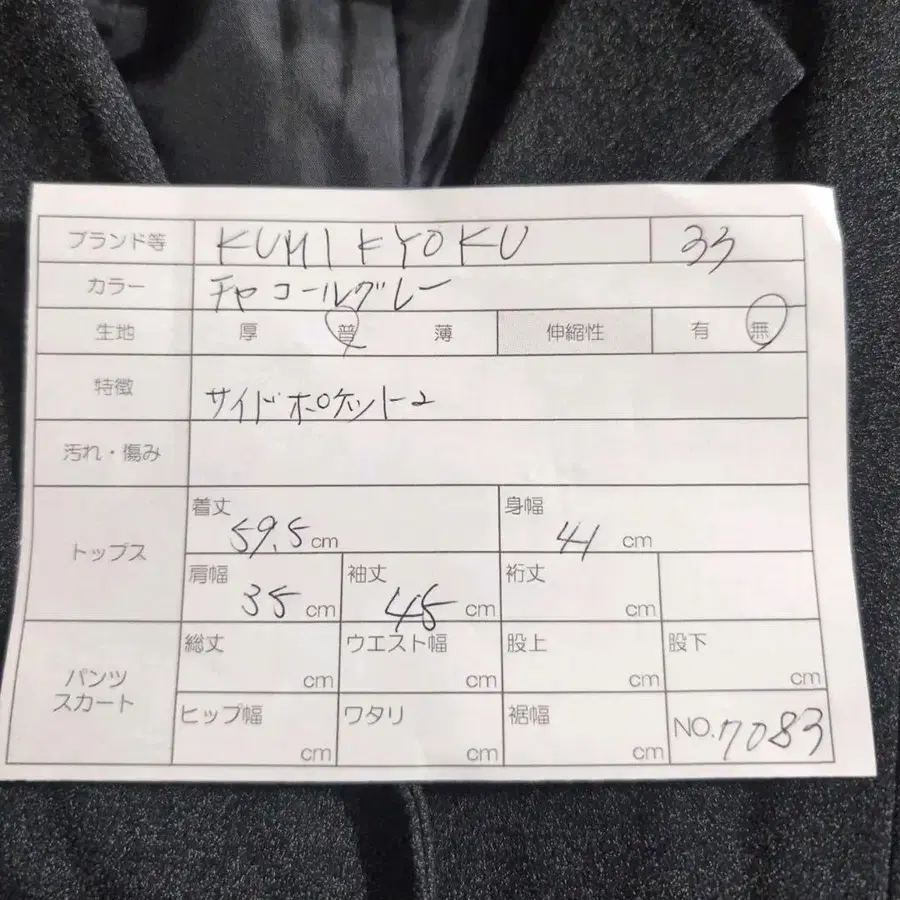 ブランド等 KUMI KYOKU 33
カラー チャコールグレー
生地 厚 普 薄 伸縮性 有 無
特徴 サイドポケット2
汚れ・傷み
トップス
着丈 59.5cm 身幅 41 cm
肩幅 35 cm 袖丈 45 cm 裄丈 cm
パンツ
スカート
総丈 cm ウエスト幅 cm 股上 cm 股下 cm
ヒップ幅 cm ワタリ cm 裾幅 cm NO.7083